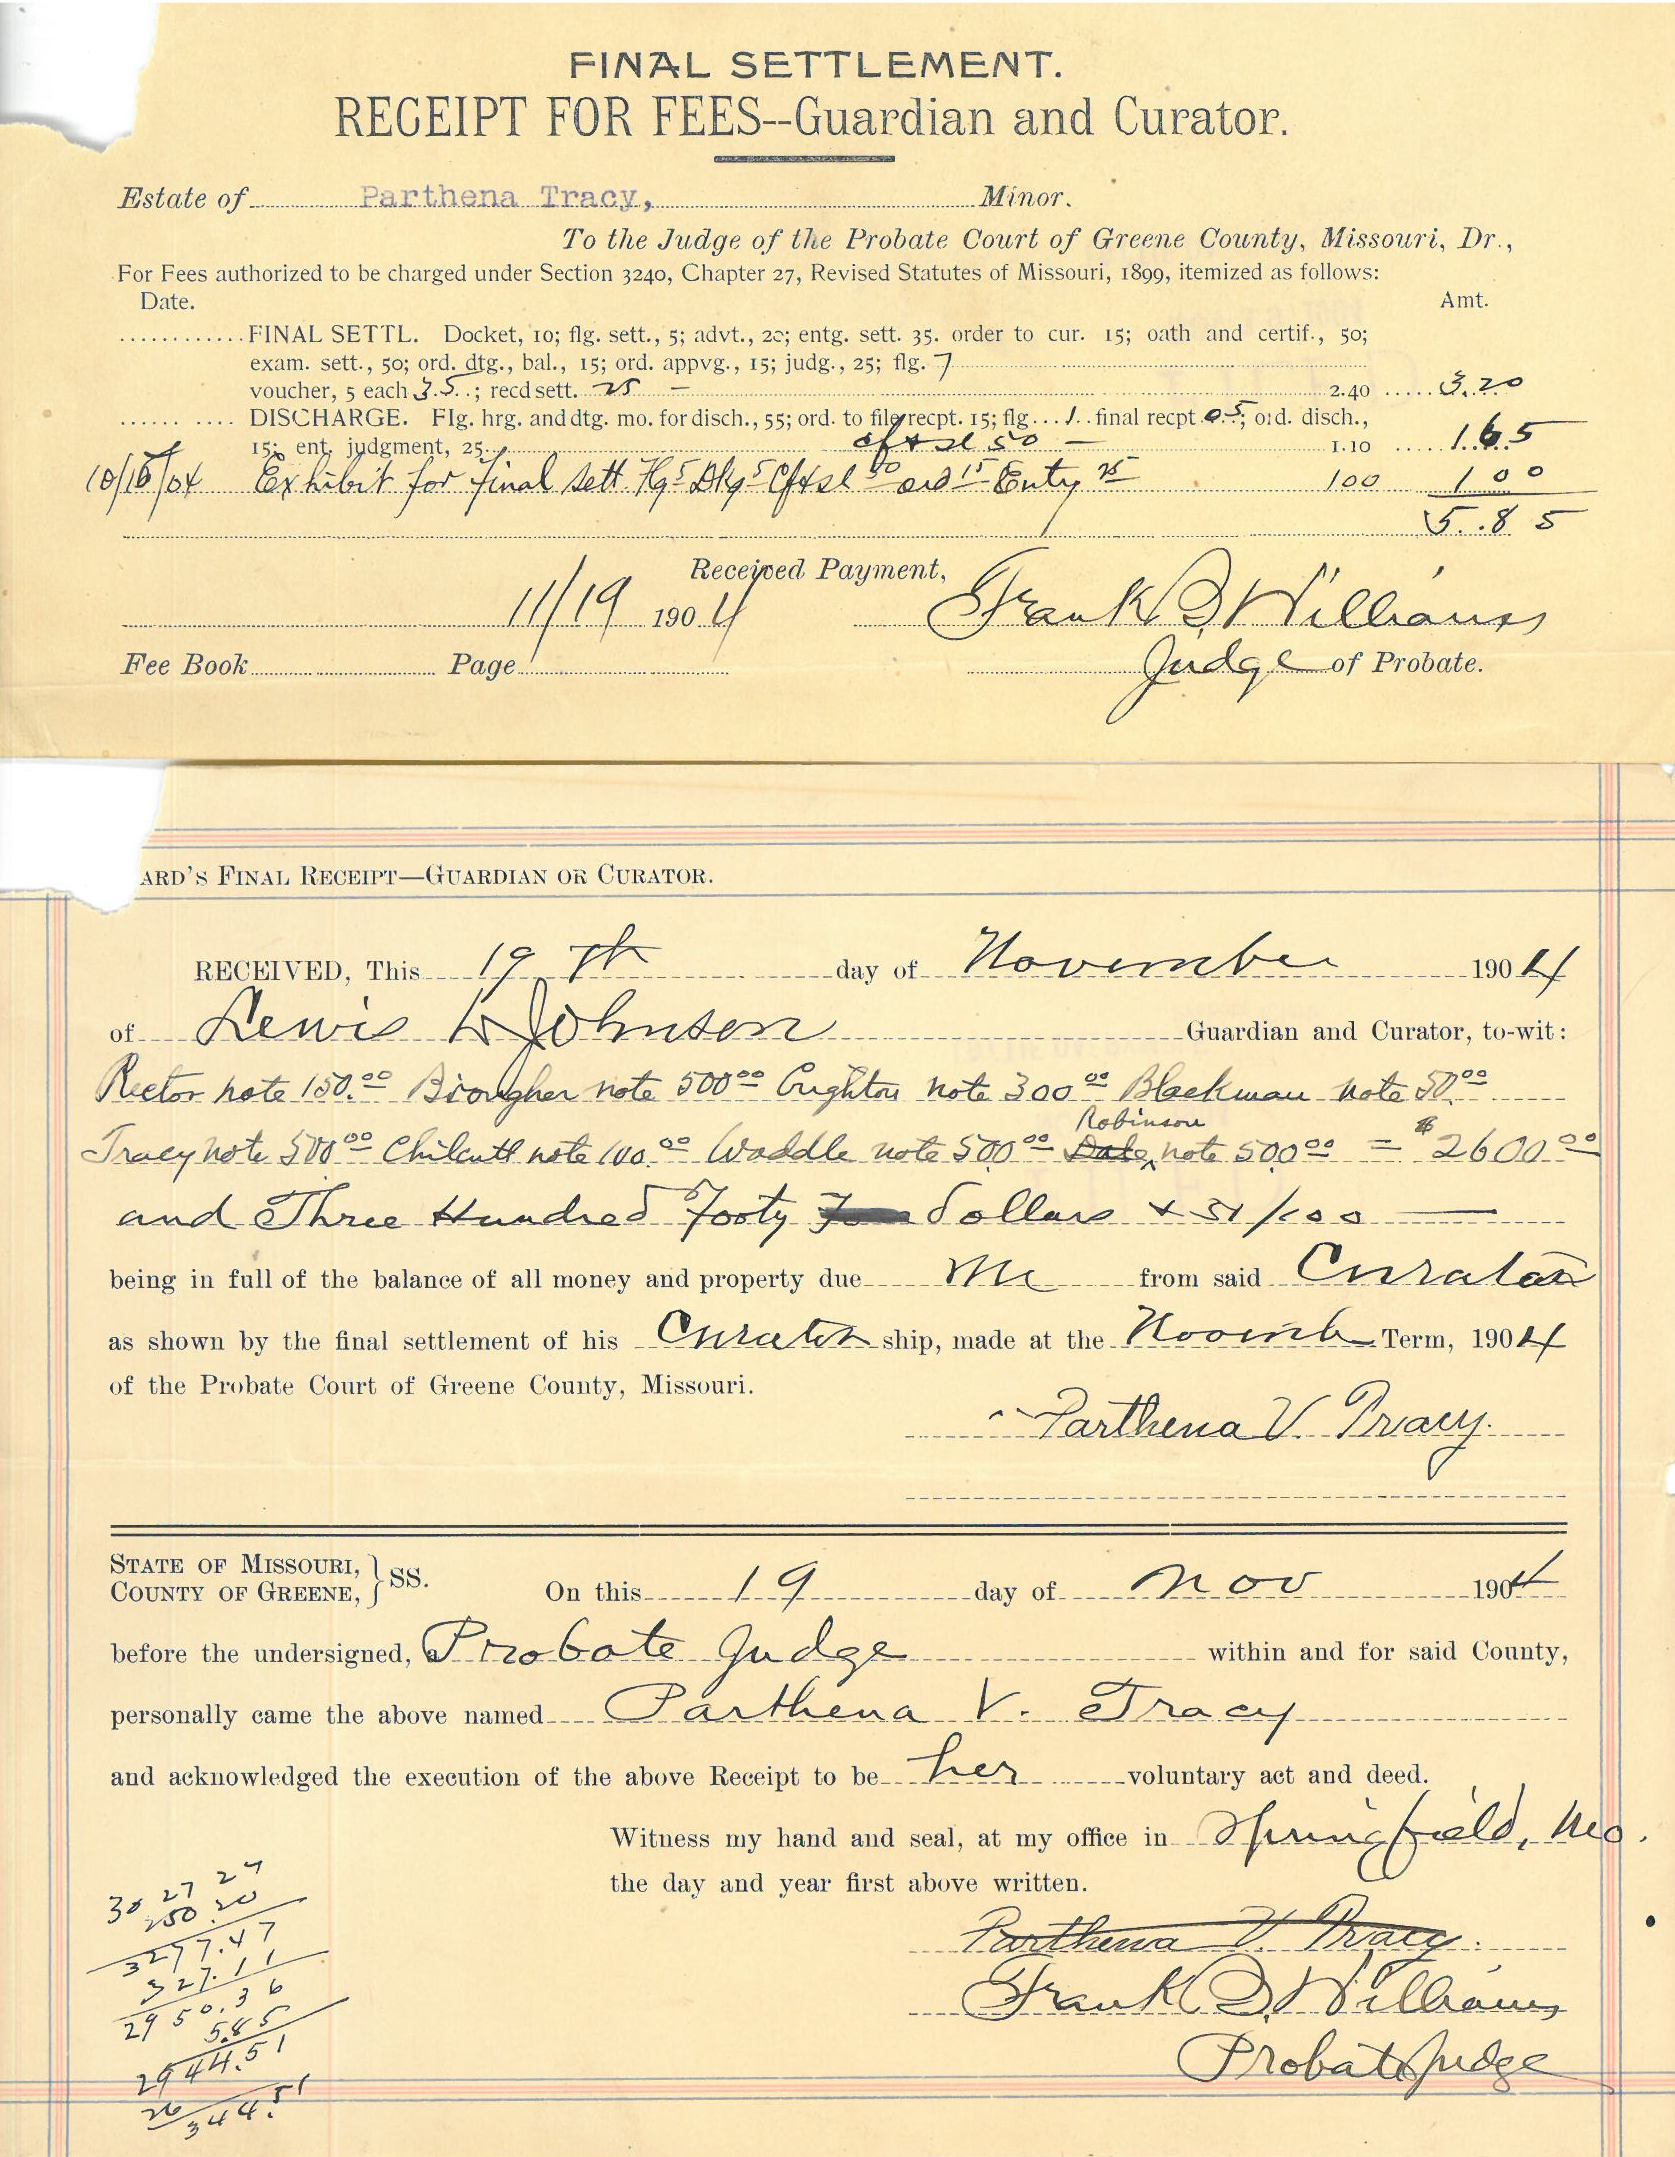 FINAL SETTLEMENT.
RECEIPT FOR FEES--Guardian and Curator.
Estate of Parthena Tracy, Minor.
To the Judge of the Probate Court of Greene County, Missouri, Dr.,
For Fees authorized to be charged under Section 3240, Chapter 27, Revised Statutes of Missouri, 1899, itemized as follows:
Date. Amt.
FINAL SETTL. Docket, 10; flg. sett., 5; advt., 20; entg. sett. 35. order to cur. 15; oath and certif., 50;
exam. sett., 50; ord. dtg., bal., 15; ord. appvg., 15; judg., 25; flg. 7
voucher, 5 each 35.; recd sett. 25 – 2.40 3.20
DISCHARGE. Flg. hrg. and dtg. mo. for disch., 55; ord. to file recpt. 15; flg 1 final recpt 05; ord. disch.,
15; ent. judgment, 25. cf & sl 50 – 1.10 1.65
10/15/04 Exhibit for final sett. Flg 5 Dkg 5 Cf & sl 50 ord 15 Entg 25 100 1 00
5.85
Received Payment,
11/19 1904 Frank B. Williams
Fee Book Page Judge of Probate.
ARD'S FINAL RECEIPT—GUARDIAN OR CURATOR.
RECEIVED, This 19th day of November 1904
of Lewis L Johnson Guardian and Curator, to-wit:
Rector note 150.00 Brougher note 500 00 Crighton note 300 00 Blackman note 50 00
Robinson
Tracy note 500 00 Chilcutt note 100.00 Waddle note 500 00 Dale note 500 00 = $2600 00
and Three Hundred Forty Four dollars & 51/100
being in full of the balance of all money and property due me from said Curator
as shown by the final settlement of his Curator ship, made at the Novemb Term, 1904
of the Probate Court of Greene County, Missouri.
Parthena V. Tracy.
STATE OF MISSOURI, } SS.
COUNTY OF GREENE, On this 19 day of Nov 1904
before the undersigned, a Probate Judge within and for said County,
personally came the above named Parthena V. Tracy
and acknowledged the execution of the above Receipt to be her voluntary act and deed.
Witness my hand and seal, at my office in Springfield, Mo.
the day and year first above written.
Parthena V. Tracy.
Frank B. Williams
Probate Judge
30 27 27
250.20
3277.47
327.11
2950.36
5.85
2944.51
26
344.51